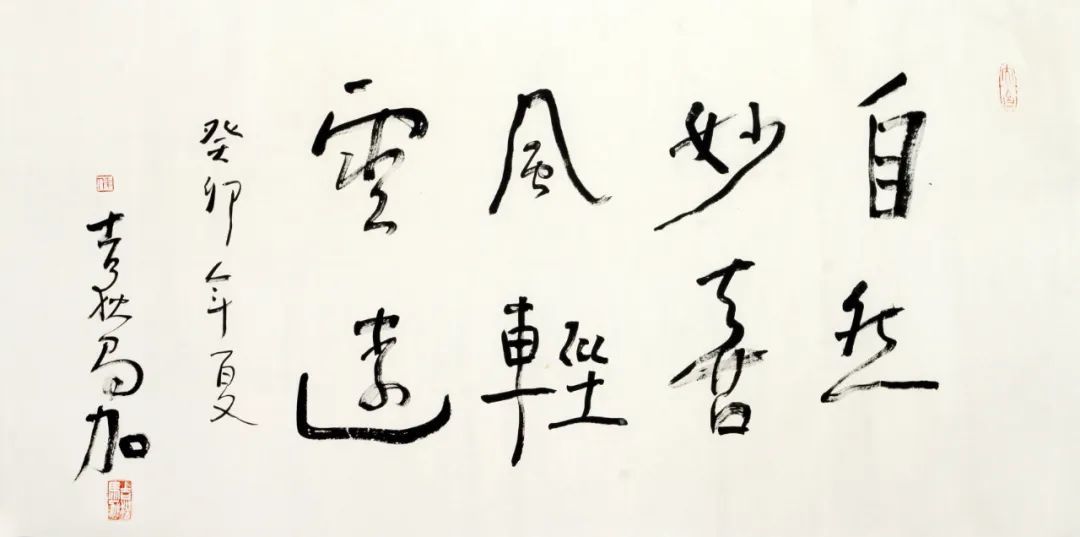 自然
妙喜
風輕
雲遠
癸卯年夏
吉狄馬加